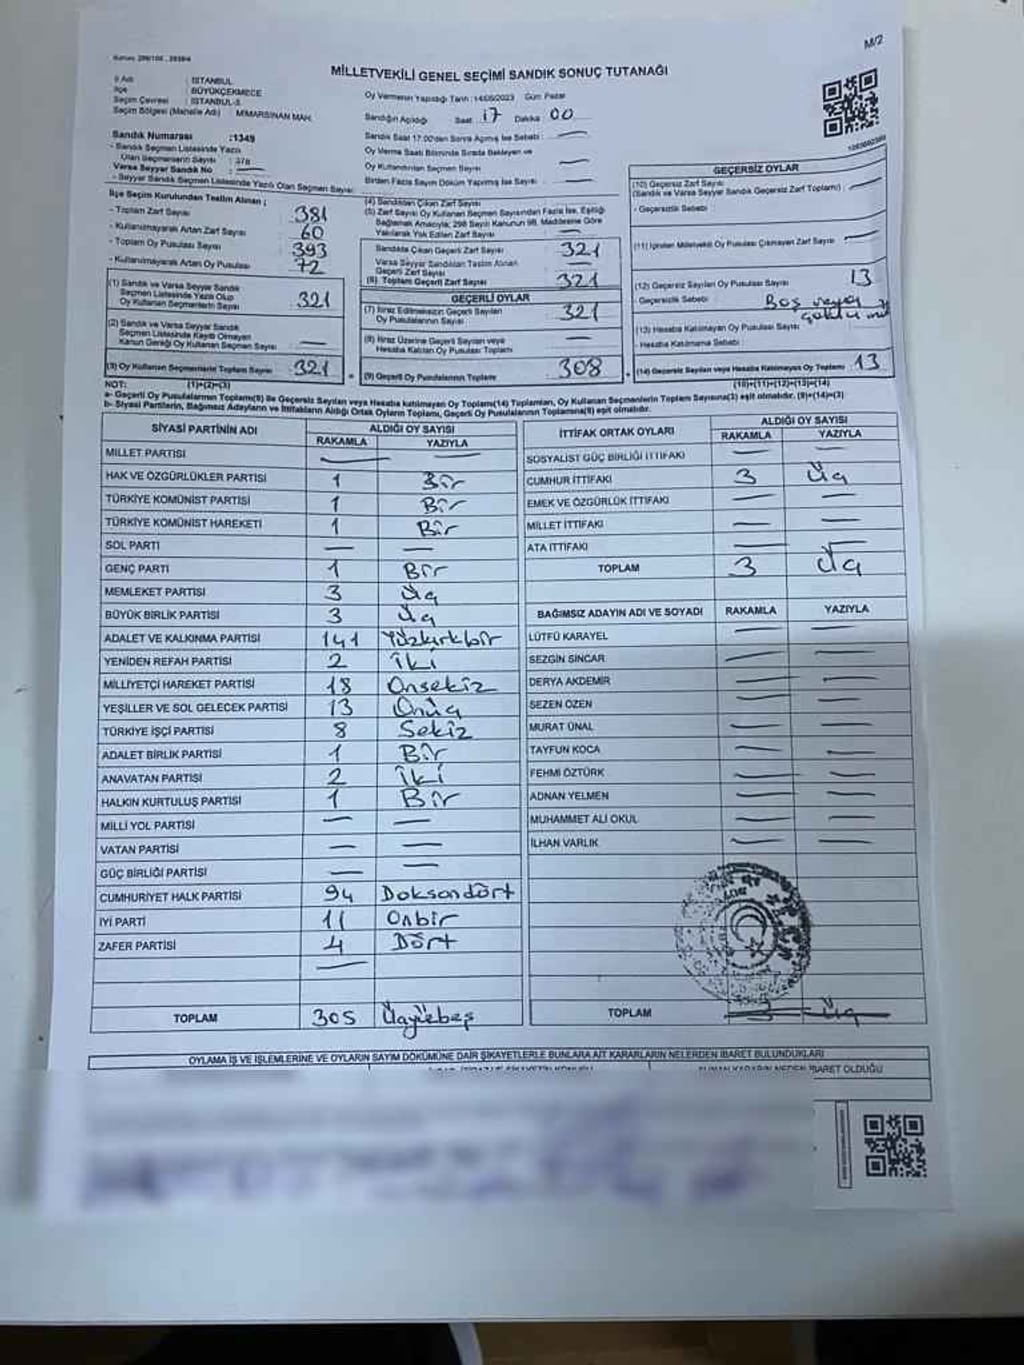 M/2
MİLLETVEKİLİ GENEL SEÇİMİ SANDIK SONUÇ TUTANAĞI
İl Adı : İSTANBUL
İlçe : BÜYÜKÇEKMECE
Seçim Çevresi : İSTANBUL-3
Seçim Bölgesi (Mahalle Adı) : MİMARSİNAN MAH.
Oy Vermenin Yapıldığı Tarih :14/05/2023 Gün Pazar
Sandığın Açıldığı Saat 17 Dakika 00
Sandık Numarası :1349
- Sandık Seçmen Listesinde Yazılı
Olan Seçmenlerin Sayısı : 378
Varsa Seyyar Sandık No :
- Seyyar Sandık Seçmen Listesinde Yazılı Olan Seçmen Sayısı:
Sandık Saat 17:00'den Sonra Açılmış İse Sebebi :
Oy Verme Saati Bitiminde Sırada Bekleyen ve
Oy Kullandırılan Seçmen Sayısı :
Birden Fazla Sayım Döküm Yapılmış İse Sayısı :
İlçe Seçim Kurulundan Teslim Alınan ;
- Toplam Zarf Sayısı 381
- Kullanılmayarak Artan Zarf Sayısı 60
- Toplam Oy Pusulası Sayısı 393
- Kullanılmayarak Artan Oy Pusulası 72
(1) Sandık ve Varsa Seyyar Sandık
Seçmen Listesinde Yazılı Olup
Oy Kullanan Seçmenlerin Sayısı 321
(2) Sandık ve Varsa Seyyar Sandık
Seçmen Listesinde Kayıtlı Olmayan
Kanun Gereği Oy Kullanan Seçmen Sayısı
(3) Oy Kullanan Seçmenlerin Toplam Sayısı 321
(1)+(2)=(3)
(4) Sandıktan Çıkan Zarf Sayısı
(5) Zarf Sayısı Oy Kullanan Seçmen Sayısından Fazla İse, Eşitliği
Sağlamak Amacıyla; 298 Sayılı Kanunun 98. Maddesine Göre
Yakılarak Yok Edilen Zarf Sayısı
Sandıkta Çıkan Geçerli Zarf Sayısı 321
Varsa Seyyar Sandıktan Teslim Alınan
Geçerli Zarf Sayısı
(6) Toplam Geçerli Zarf Sayısı 321
GEÇERLİ OYLAR
(7) İtiraz Edilmeksizin Geçerli Sayılan
Oy Pusulalarının Sayısı 321
(8) İtiraz Üzerine Geçerli Sayılan veya
Hesaba Katılan Oy Pusulası Toplamı
(9) Geçerli Oy Pusulalarının Toplamı 308
GEÇERSİZ OYLAR
(10) Geçersiz Zarf Sayısı
(Sandık ve Varsa Seyyar Sandık Geçersiz Zarf Toplamı) :
- Geçersizlik Sebebi :
(11) İçinden Milletvekili Oy Pusulası Çıkmayan Zarf Sayısı
(12) Geçersiz Sayılan Oy Pusulası Sayısı 13
- Geçersizlik Sebebi : Boş veya
(13) Hesaba Katılmayan Oy Pusulası Sayısı
- Hesaba Katılmama Sebebi :
(14) Geçersiz Sayılan veya Hesaba Katılmayan Oy Toplamı 13
(10)+(11)+(12)+(13)=(14)
NOT:
a- Geçerli Oy Pusulalarının Toplamı(9) ile Geçersiz Sayılan veya Hesaba Katılmayan Oy Toplamı(14) Toplamları, Oy Kullanan Seçmenlerin Toplam Sayısına(3) eşit olmalıdır. (9)+(14)=(3)
b- Siyasi Partilerin, Bağımsız Adayların ve İttifakların Aldığı Ortak Oyların Toplamı, Geçerli Oy Pusulalarının Toplamına(9) eşit olmalıdır.
SİYASİ PARTİNİN ADI ALDIĞI OY SAYISI
RAKAMLA YAZIYLA
MİLLET PARTİSİ
HAK VE ÖZGÜRLÜKLER PARTİSİ 1 Bir
TÜRKİYE KOMÜNİST PARTİSİ 1 Bir
TÜRKİYE KOMÜNİST HAREKETİ 1 Bir
SOL PARTİ
GENÇ PARTİ 1 Bir
MEMLEKET PARTİSİ 3 Üç
BÜYÜK BİRLİK PARTİSİ 3 Üç
ADALET VE KALKINMA PARTİSİ 141 Yüzkırkbir
YENİDEN REFAH PARTİSİ 2 İki
MİLLİYETÇİ HAREKET PARTİSİ 18 Onsekiz
YEŞİLLER VE SOL GELECEK PARTİSİ 13 Onüç
TÜRKİYE İŞÇİ PARTİSİ 8 Sekiz
ADALET BİRLİK PARTİSİ 1 Bir
ANAVATAN PARTİSİ 2 İki
HALKIN KURTULUŞ PARTİSİ 1 Bir
MİLLİ YOL PARTİSİ
VATAN PARTİSİ
GÜÇ BİRLİĞİ PARTİSİ
CUMHURİYET HALK PARTİSİ 94 Doksandört
İYİ PARTİ 11 Onbir
ZAFER PARTİSİ 4 Dört
TOPLAM 305 Üçyüzbeş
İTTİFAK ORTAK OYLARI ALDIĞI OY SAYISI
RAKAMLA YAZIYLA
SOSYALİST GÜÇ BİRLİĞİ İTTİFAKI
CUMHUR İTTİFAKI 3 Üç
EMEK VE ÖZGÜRLÜK İTTİFAKI
MİLLET İTTİFAKI
ATA İTTİFAKI
TOPLAM 3 Üç
BAĞIMSIZ ADAYIN ADI VE SOYADI RAKAMLA YAZIYLA
LÜTFÜ KARAYEL
SEZGİN SİNCAR
DERYA AKDEMİR
SEZEN ÖZEN
MURAT ÜNAL
TAYFUN KOCA
FEHMİ ÖZTÜRK
ADNAN YELMEN
MUHAMMET ALİ OKUL
İLHAN VARLIK
TOPLAM 3 Üç
OYLAMA İŞ VE İŞLEMLERİNE VE OYLARIN SAYIM DÖKÜMÜNE DAİR ŞİKAYETLERLE BUNLARA AİT KARARLARIN NELERDEN İBARET BULUNDUKLARI